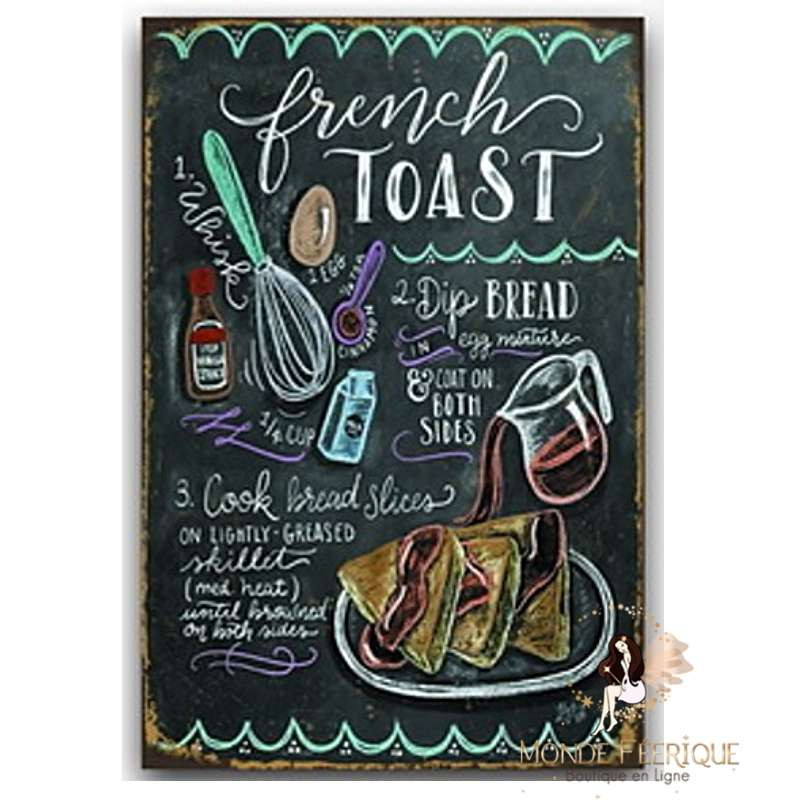 french
TOAST
1. Whisk
1 EGG
CINNAMON
1/4 CUP
2. Dip BREAD
IN egg mixture
& COAT ON
BOTH
SIDES
3. Cook bread slices
ON LIGHTLY-GREASED
skillet
(med heat)
until browned
on both sides
MONDE FÉERIQUE
boutique en Ligne